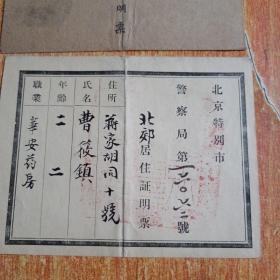 明票
北京特別市
警察局第一二〇七二號
北郊居住証明票
住所 蔣家胡同十號
氏名 曹筱鎮
年齡 二二
職業 華安药房